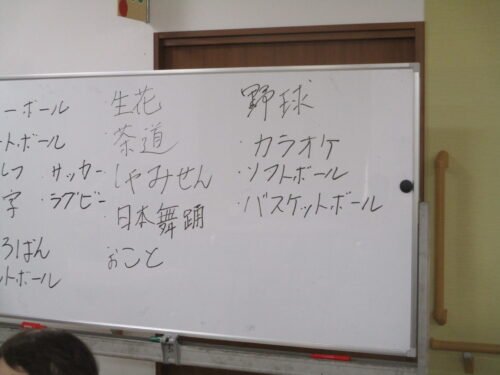 ーボール
ートボール
ルフ ・サッカー
字 ・ラグビー
ろばん
ットボール
生花
・茶道
・しゃみせん
・日本舞踊
・おこと
野球
・カラオケ
・ソフトボール
・バスケットボール